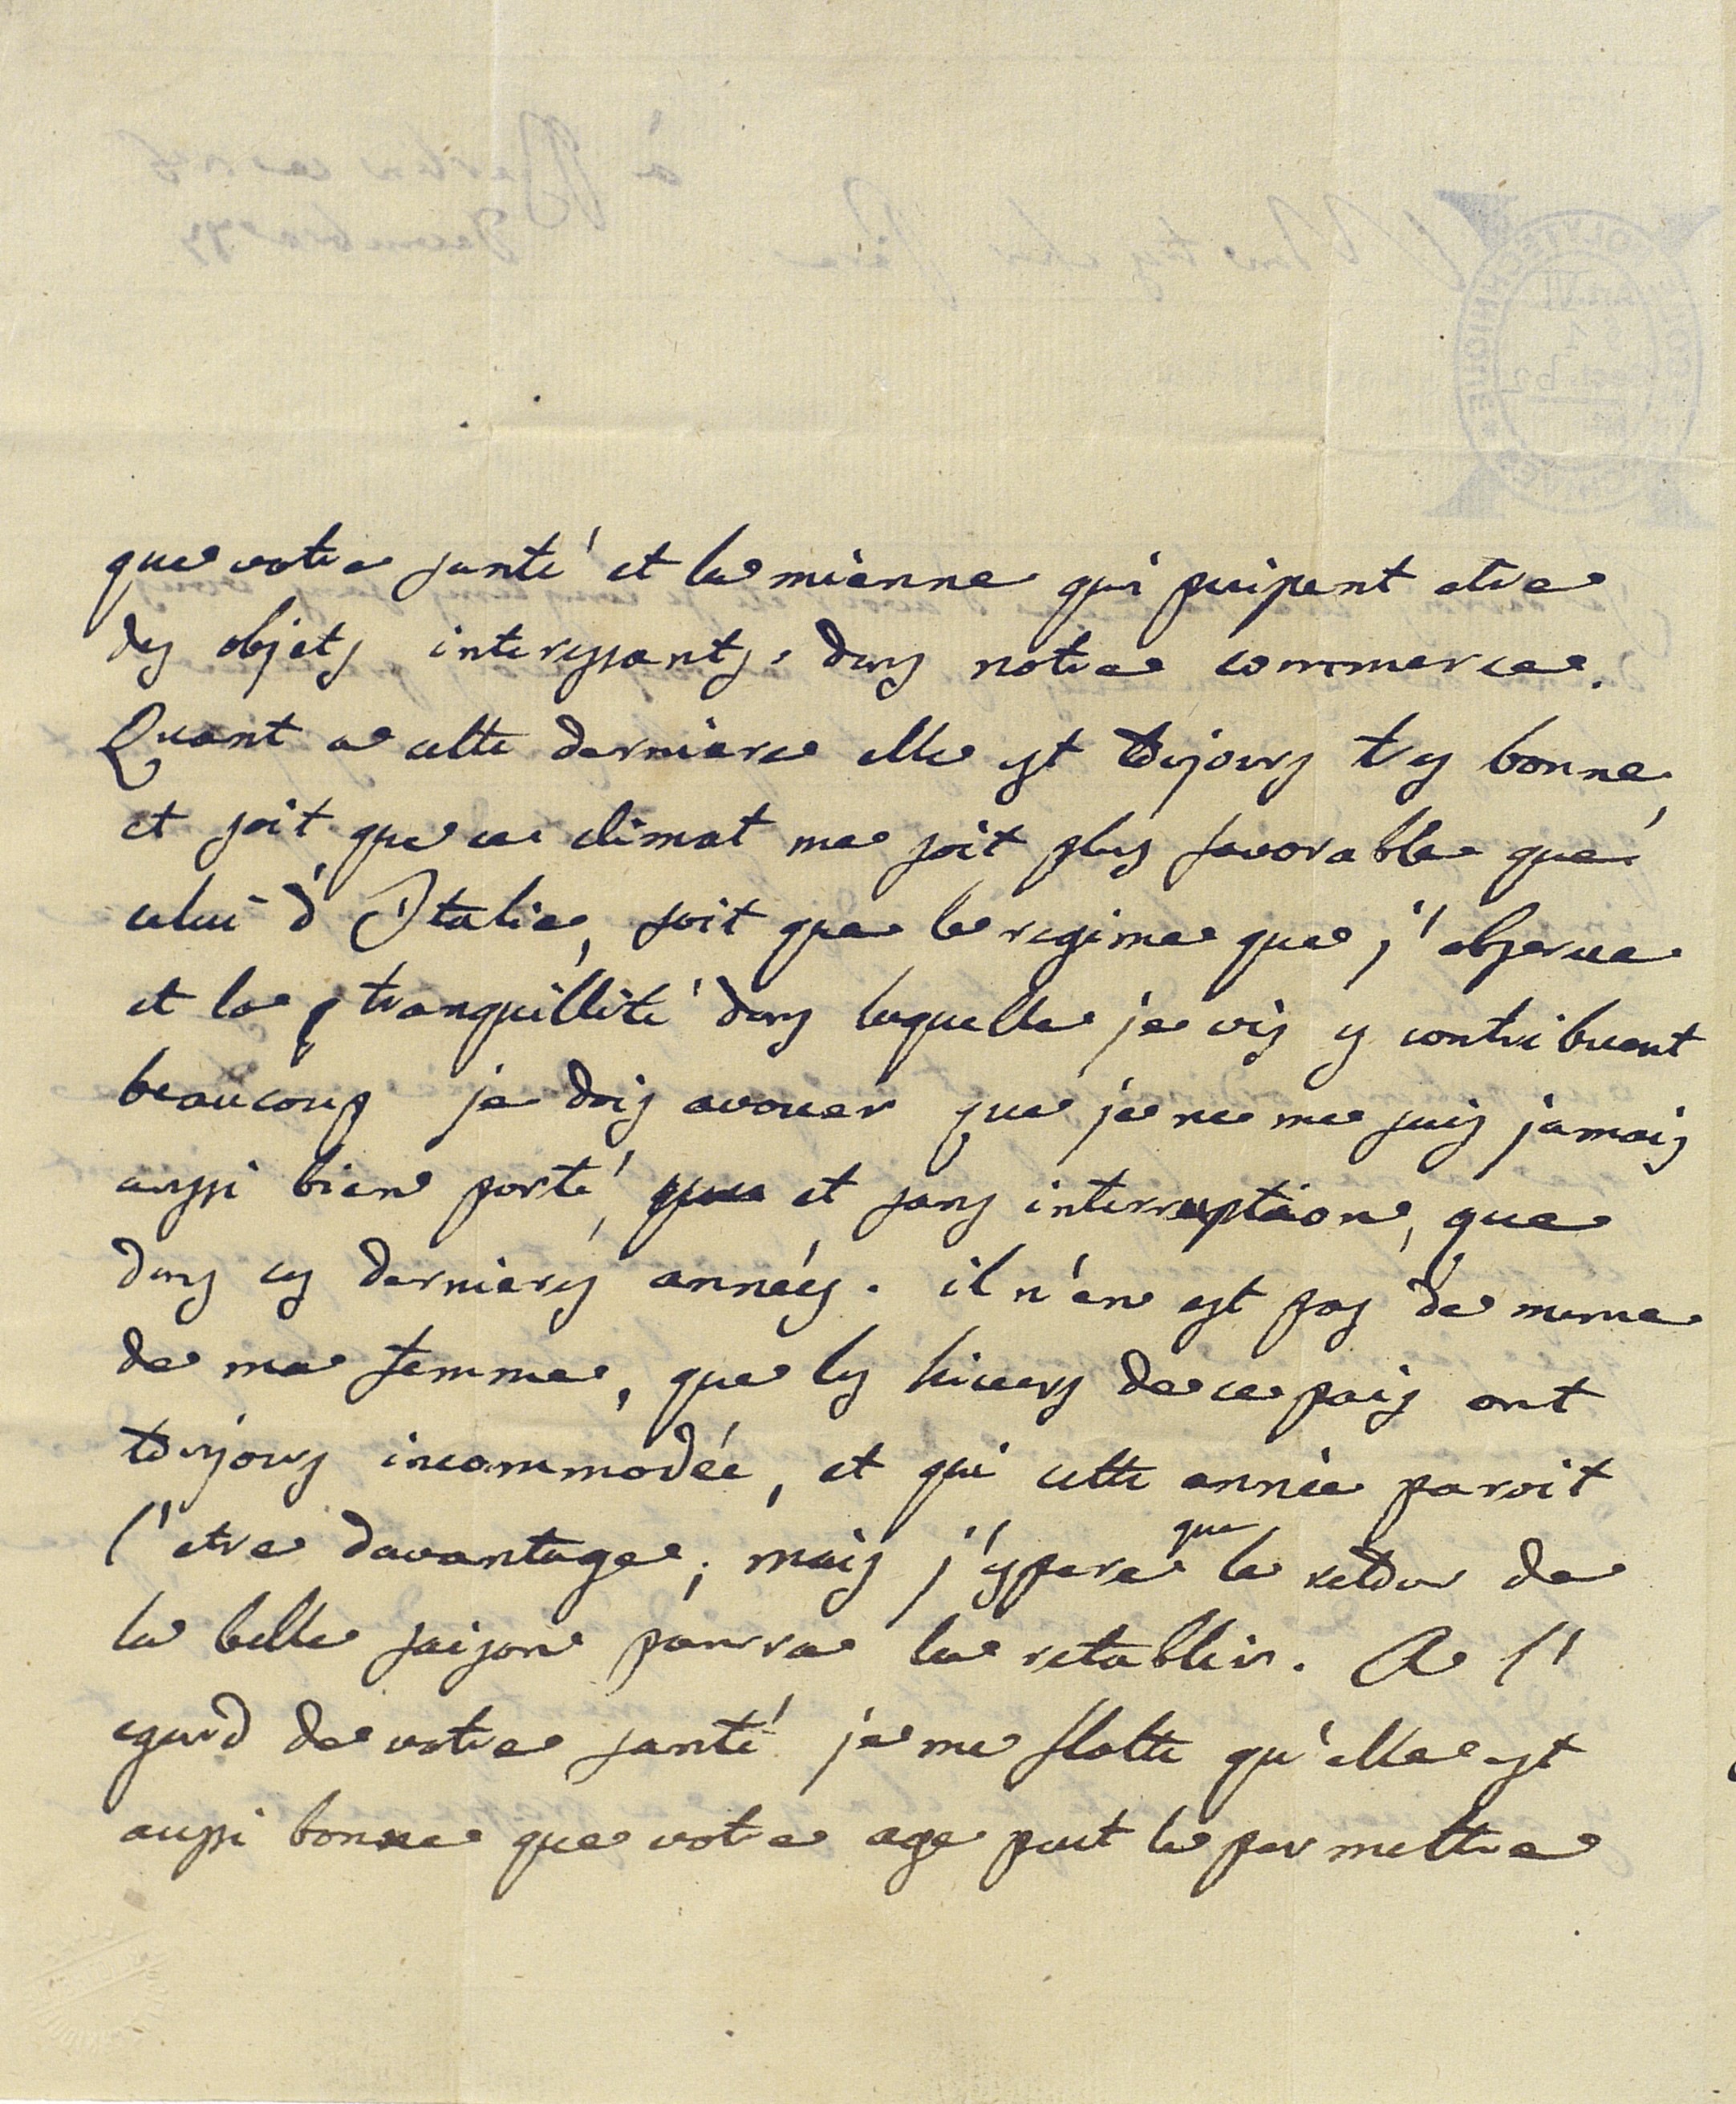 que votre santé et la mienne qui puissent etre
des objets interessants dans notre commerce.
Quant a cette derniere elle est toujours tres bonne,
et soit que ce climat me soit plus favorable que
celui d'Italie, soit que le regime que j'observe
et la tranquillité dans laquelle je vis y contribuent
beaucoup je dois avouer que je ne me suis jamais
aussi bien porté, et sans interruption, que
dans ces dernieres années. il n'en est pas de meme
de ma femme, que les hivers de ce pais ont
toujours incommodée, et qui cette année paroit
l'etre davantage; mais j'espere que le retour de
la belle saison pourra la retablir. A l'
egard de votre santé je me flatte qu'elle est
aussi bonne que votre age peut le permettre